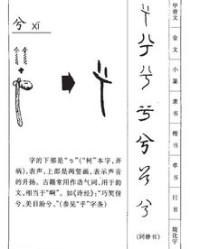 兮 xī
字的下部是“丂”(“柯”本字,斧
柄),表声,上部是两竖画,表示声音
的升扬。古籍常用作语气词,用于韵
文,相当于“啊”。如《诗经》:“巧笑倩
兮,美目盼兮。”(参见“乎”字条)
兮
兮
(同楷书)
甲骨文
金文
小篆
隶书
楷书
草书
行书
简化字